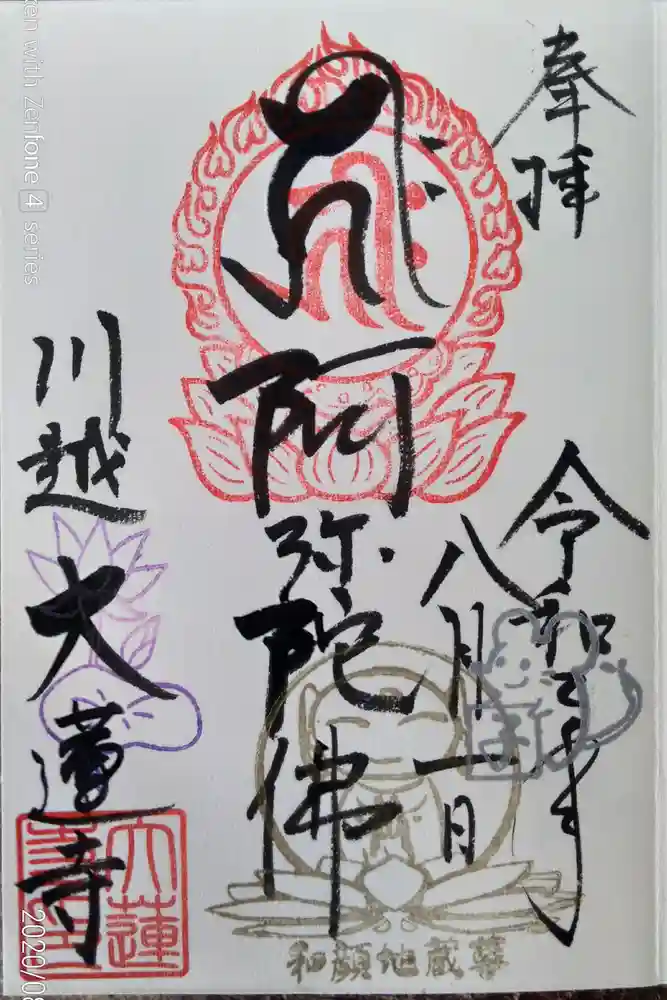 奉拝
令和二年
八月一日
阿弥陀佛
川越大蓮寺
大蓮
和顔地蔵尊
ken with Zenfone 4 series
2020/08